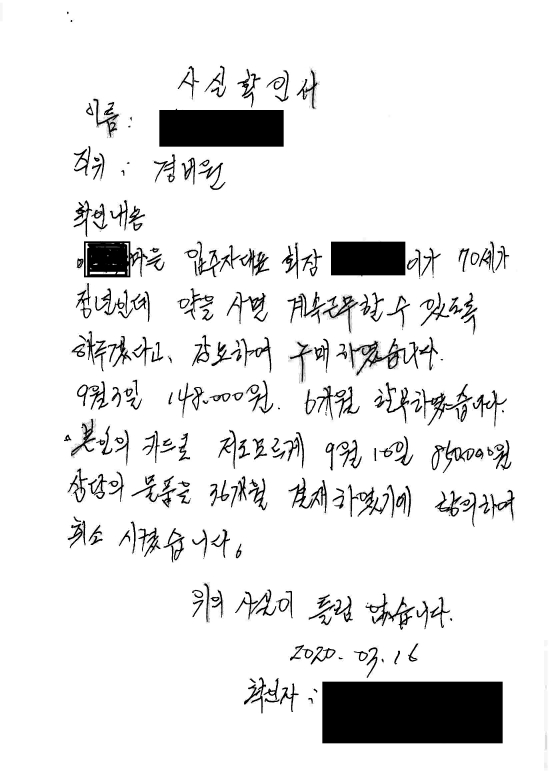 사실확인서
이름:
직위: 경비원
확인내용
마을 입주자대표 회장 이가 70세가
정년인데 약을 사면 계속근무할 수 있도록
해주겠다고, 강요하여 구매하였습니다.
9월3일 148.000원. 6개월 할부하였습니다.
본인의 카드로 저도모르게 9월 10일 850.000원
상당의 물품을 36개월 결재하였기에 항의하여
취소 시켰습니다.
위의 사실이 틀림 없습니다.
2020. 03. 16
확인자: